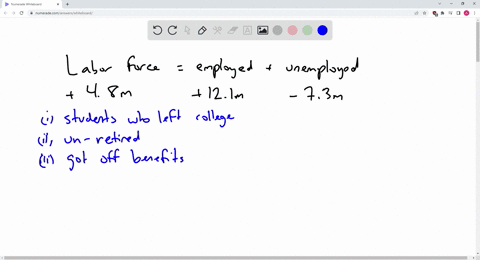 Numerade Whiteboard
numerade.com/answers/whiteboard
Labor force = employed + unemployed
+ 4.8m + 12.1m - 7.3m
(i) students who left college
(ii) un-retired
(iii) got off benefits